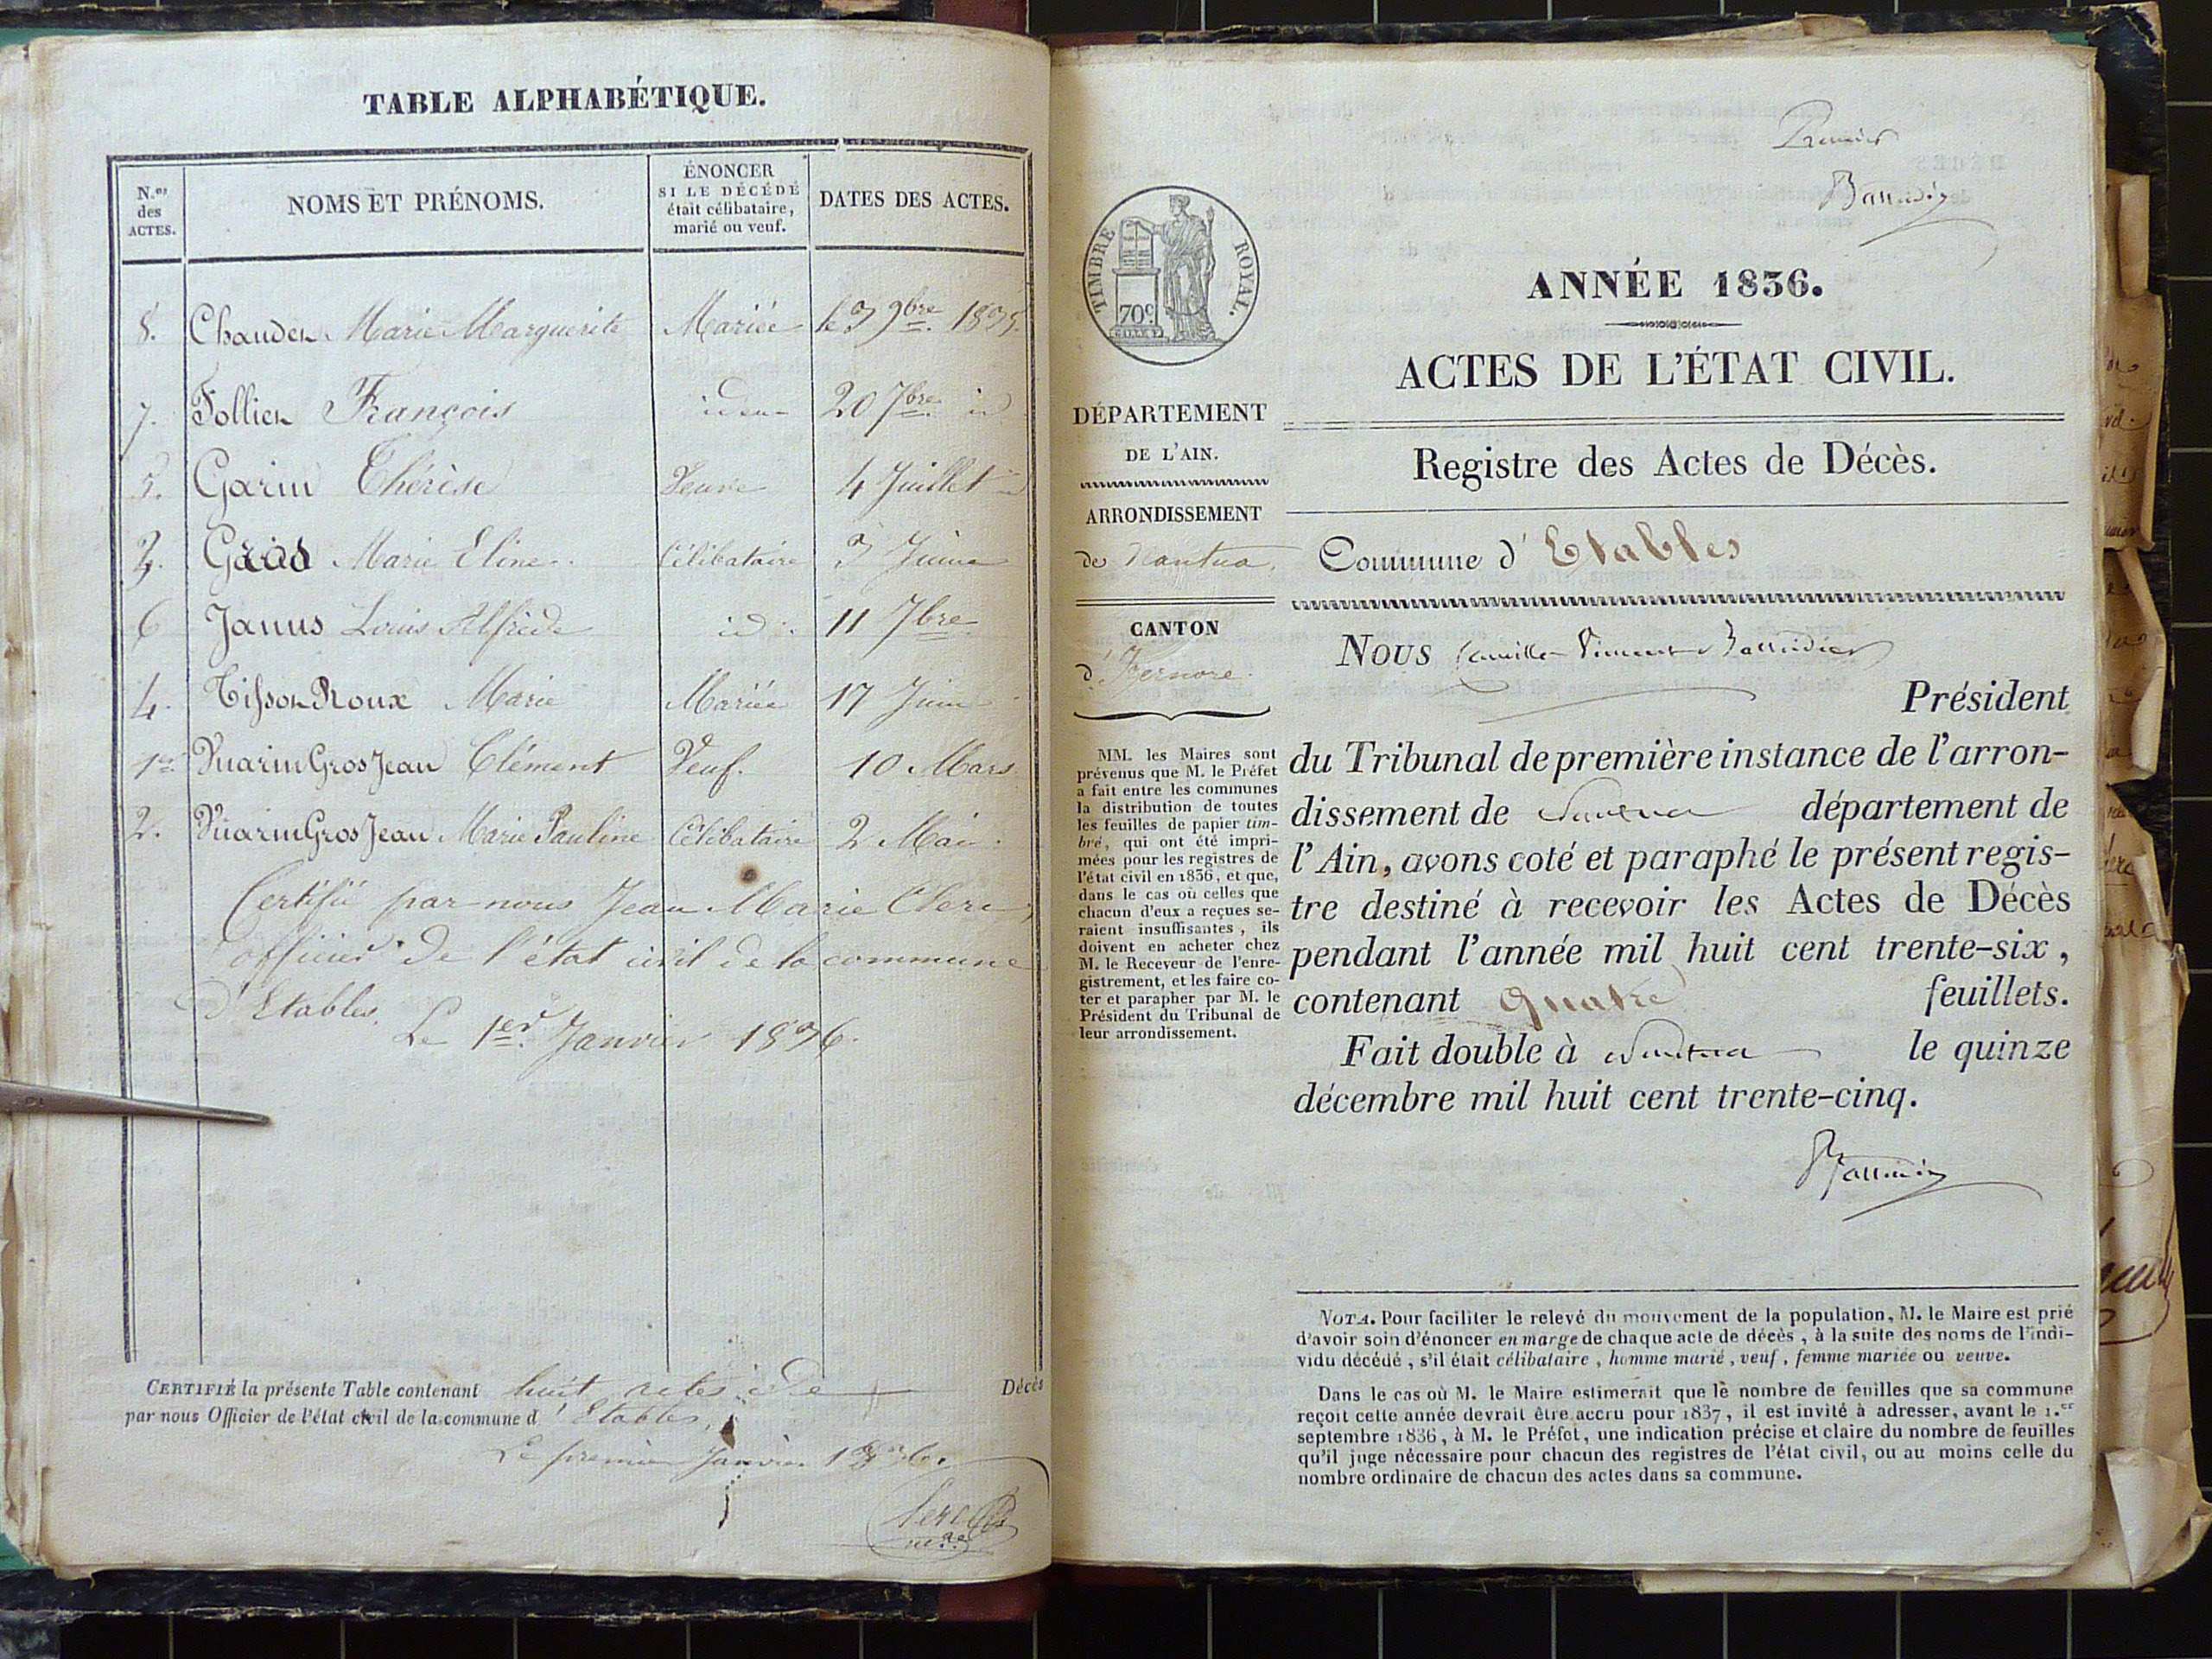 TABLE ALPHABÉTIQUE.
N.os des ACTES.
NOMS ET PRÉNOMS.
ÉNONCER
SI LE DÉCÉDÉ
était célibataire,
marié ou veuf.
DATES DES ACTES.
8. Chauder Marie Marguerite Mariée le 3 9bre 1835.
7. Follier François idem 20 7bre id
5. Garin Thérèse Veuve 4 Juillet id
3. Gras Marie Eline Célibataire 3 Juin
6 Janus Louis Alfride id. 11 7bre
4. Tisson Roux Marie Mariée 17 Juin
1er Vuarin Gros Jean Clément Veuf. 10 Mars
2. Vuarin Gros Jean Marie Pauline Célibataire 2 Mai.
Certifié par nous Jean Marie Clerc,
officier de l'état civil de la commune
d'Etables.
Le 1er. Janvier 1836.
CERTIFIÉ la présente Table contenant huit actes de Décès
par nous Officier de l'état civil de la commune d'Etables,
Le premier Janvier 1836.
Clerc
Premier
TIMBRE ROYAL.
70c
DÉPARTEMENT
DE L'AIN.
ARRONDISSEMENT
de Nantua,
CANTON
d'Izernore.
MM. les Maires sont
prévenus que M. le Préfet
a fait entre les communes
la distribution de toutes
les feuilles de papier tim-
bré, qui ont été impri-
mées pour les registres de
l'état civil en 1836, et que,
dans le cas où celles que
chacun d'eux a reçues se-
raient insuffisantes, ils
doivent en acheter chez
M. le Receveur de l'enre-
gistrement, et les faire co-
ter et parapher par M. le
Président du Tribunal de
leur arrondissement.
ANNÉE 1836.
ACTES DE L'ÉTAT CIVIL.
Registre des Actes de Décès.
Commune d'Etables
Nous Camille Vincent
Président
du Tribunal de première instance de l'arron-
dissement de Nantua département de
l'Ain, avons coté et paraphé le présent regis-
tre destiné à recevoir les Actes de Décès
pendant l'année mil huit cent trente-six,
contenant quatre feuillets.
Fait double à Nantua le quinze
décembre mil huit cent trente-cinq.
NOTA. Pour faciliter le relevé du mouvement de la population, M. le Maire est prié
d'avoir soin d'énoncer en marge de chaque acte de décès, à la suite des noms de l'indi-
vidu décédé, s'il était célibataire, homme marié, veuf, femme mariée ou veuve.
Dans le cas où M. le Maire estimerait que le nombre de feuilles que sa commune
reçoit cette année devrait être accru pour 1837, il est invité à adresser, avant le 1.er
septembre 1836, à M. le Préfet, une indication précise et claire du nombre de feuilles
qu'il juge nécessaire pour chacun des registres de l'état civil, ou au moins celle du
nombre ordinaire de chacun des actes dans sa commune.